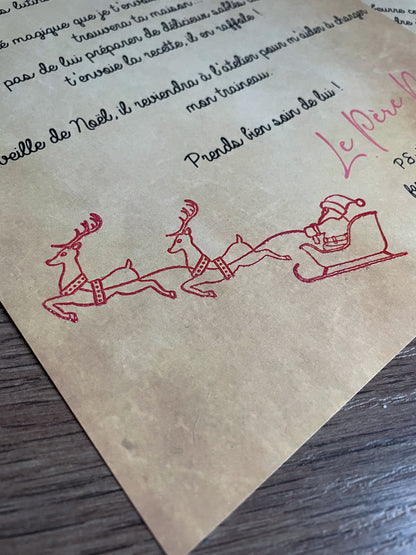 é magique que je t'envo
trouvera ta maison...
pas de lui préparer de délicieux sablés
t'envoie la recette, il en raffole !
veille de Noël, il reviendra à l'atelier pour m'aider à charger
mon traineau.
Prends bien soin de lui !
Le Père N
P.S.